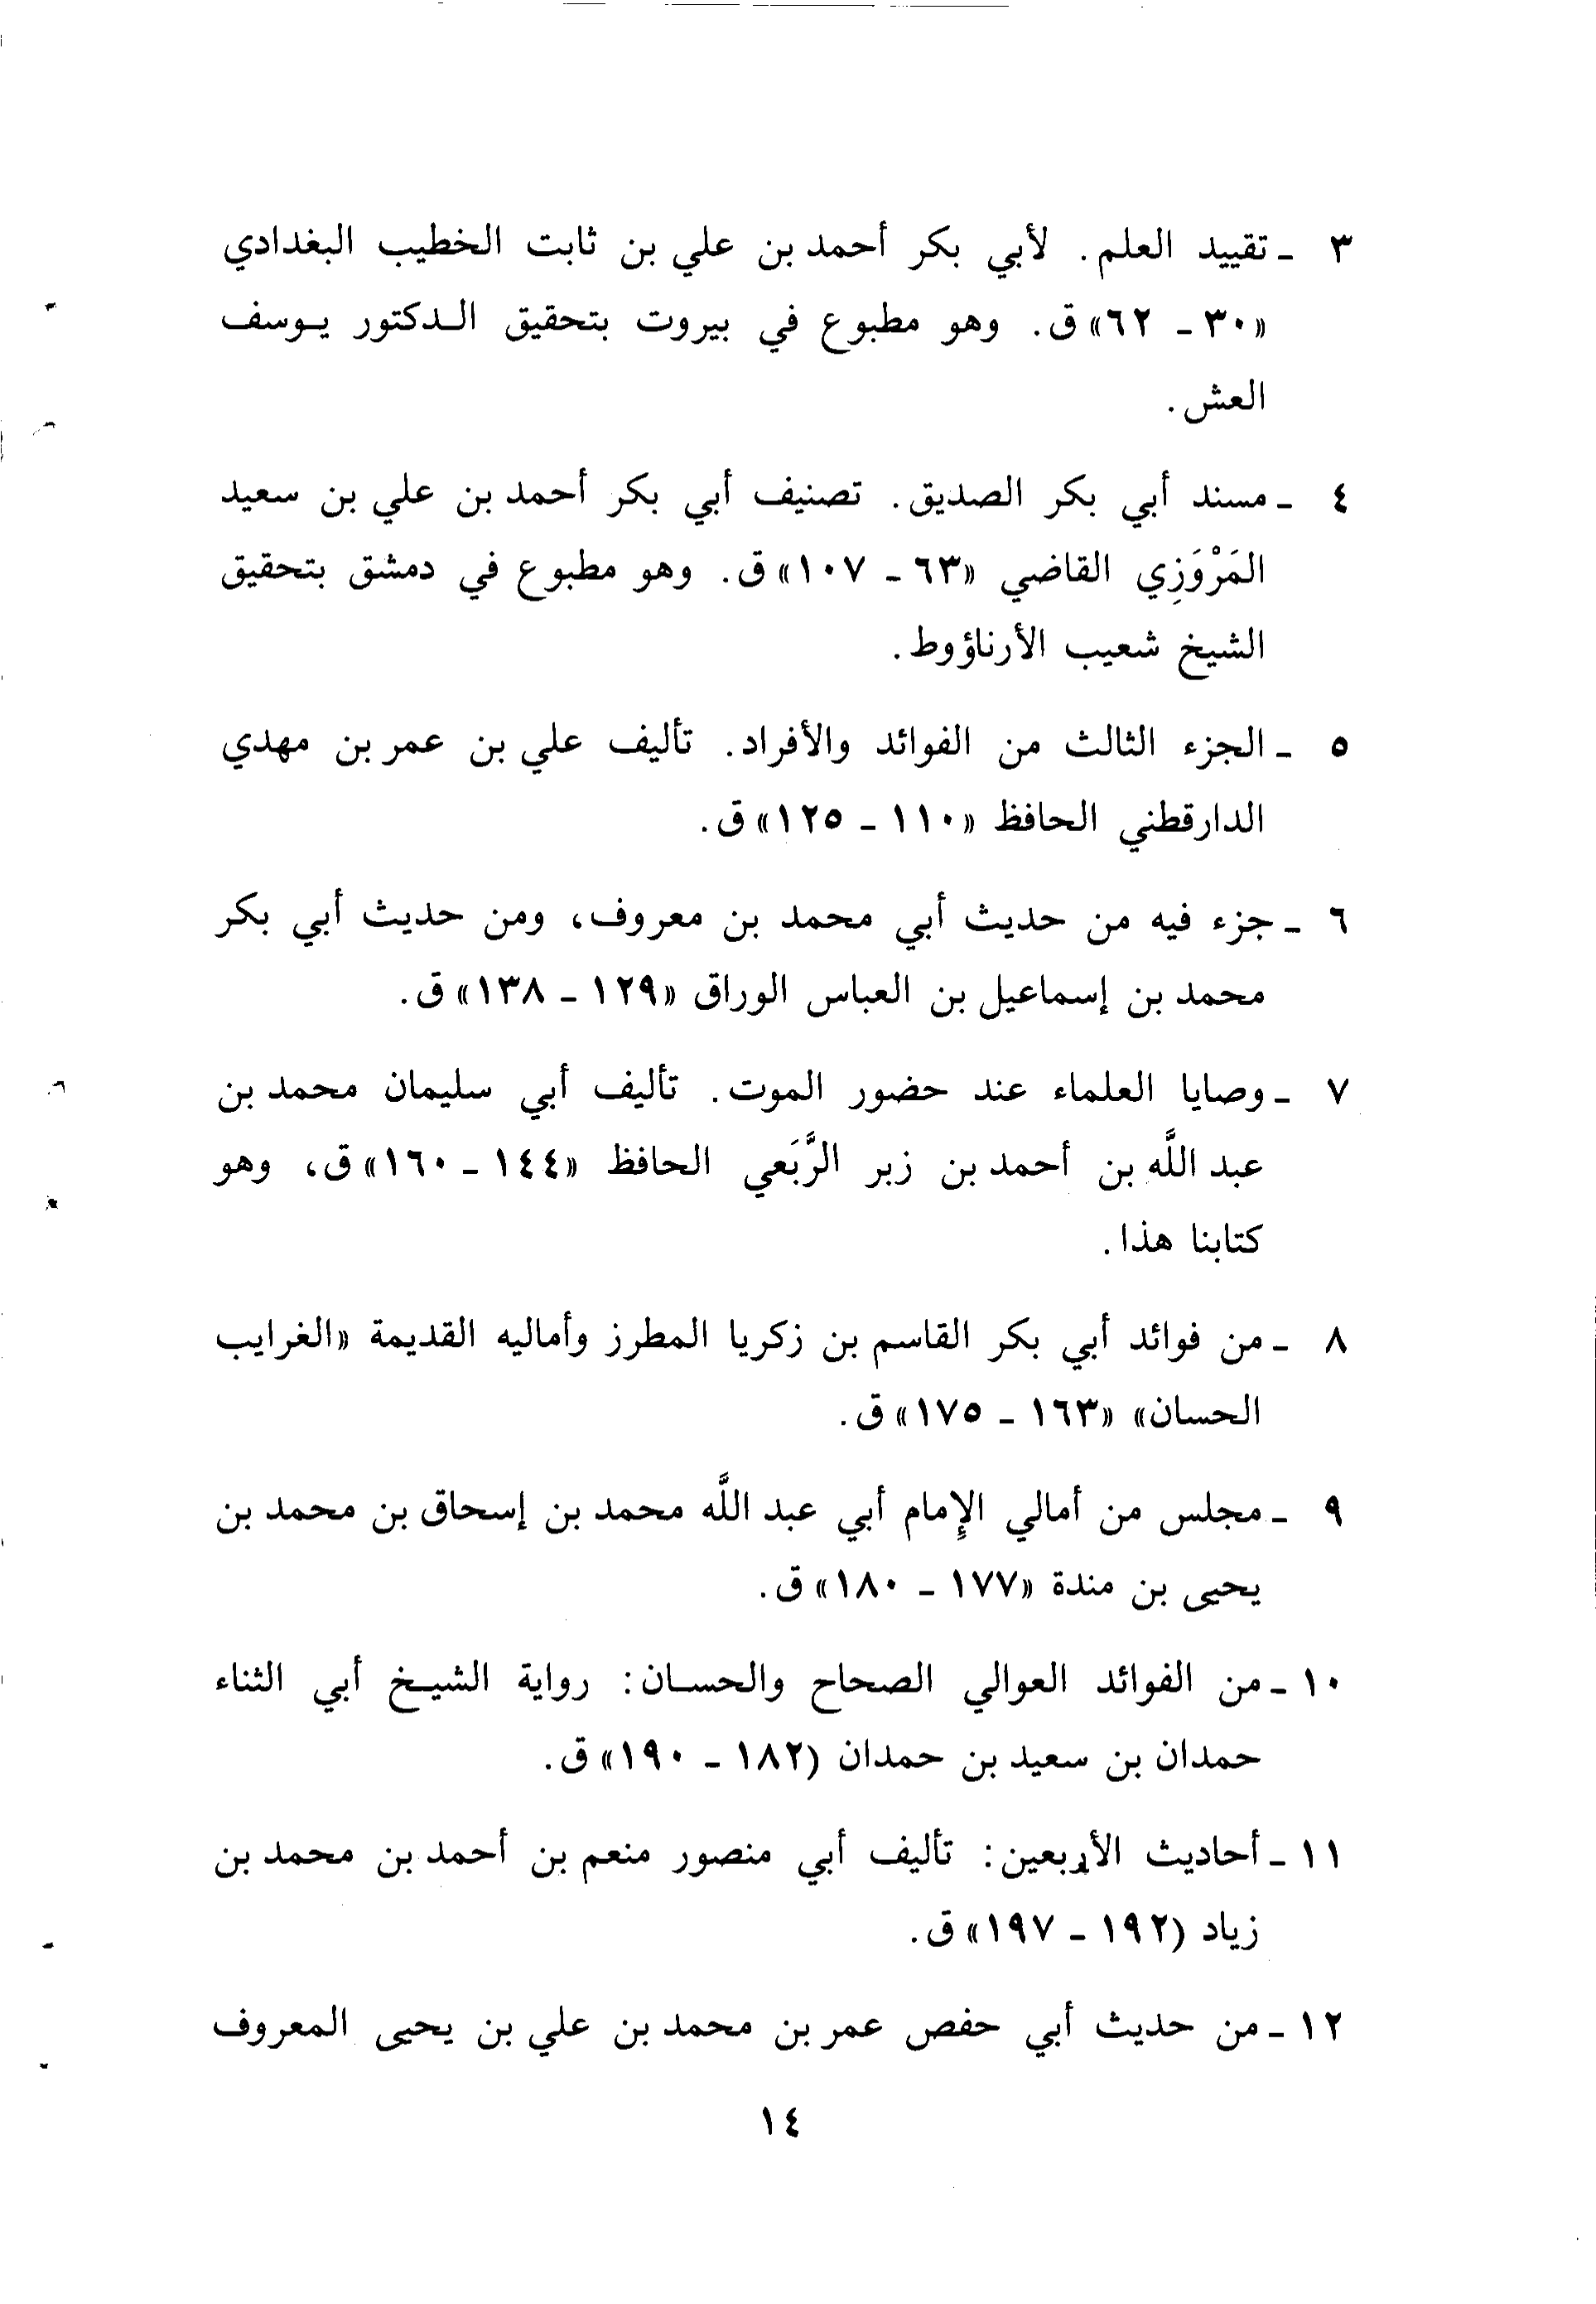 ٣ - تقييد العلم. لأبي بكر أحمد بن علي بن ثابت الخطيب البغدادي
«٣٠ - ٦٢» ق. وهو مطبوع في بيروت بتحقيق الـدكتور يـوسف
العش.
٤ - مسند أبي بكر الصديق. تصنيف أبي بكر أحمد بن علي بن سعيد
المَرْوَزِي القاضي «٦٣ - ١٠٧» ق. وهو مطبوع في دمشق بتحقيق
الشيخ شعيب الأرناؤوط.
٥ - الجزء الثالث من الفوائد والأفراد. تأليف علي بن عمر بن مهدي
الدارقطني الحافظ «١١٠ - ١٢٥» ق.
٦ - جزء فيه من حديث أبي محمد بن معروف، ومن حديث أبي بكر
محمد بن إسماعيل بن العباس الوراق «١٢٩ - ١٣٨» ق.
٧ - وصايا العلماء عند حضور الموت. تأليف أبي سليمان محمد بن
عبد اللَّه بن أحمد بن زبر الرَّبَعي الحافظ «١٤٤ - ١٦٠» ق، وهو
كتابنا هذا.
٨ - من فوائد أبي بكر القاسم بن زكريا المطرز وأماليه القديمة «الغرايب
الحسان» «١٦٣ - ١٧٥» ق.
٩ - مجلس من أمالي الإمام أبي عبد اللَّه محمد بن إسحاق بن محمد بن
يحيى بن مندة «١٧٧ - ١٨٠» ق.
١٠ - من الفوائد العوالي الصحاح والحسـان: رواية الشيـخ أبي الثناء
حمدان بن سعيد بن حمدان (١٨٢ - ١٩٠» ق.
١١ - أحاديث الأربعين: تأليف أبي منصور منعم بن أحمد بن محمد بن
زياد (١٩٢ - ١٩٧» ق.
١٢ - من حديث أبي حفص عمر بن محمد بن علي بن يحيى المعروف
١٤